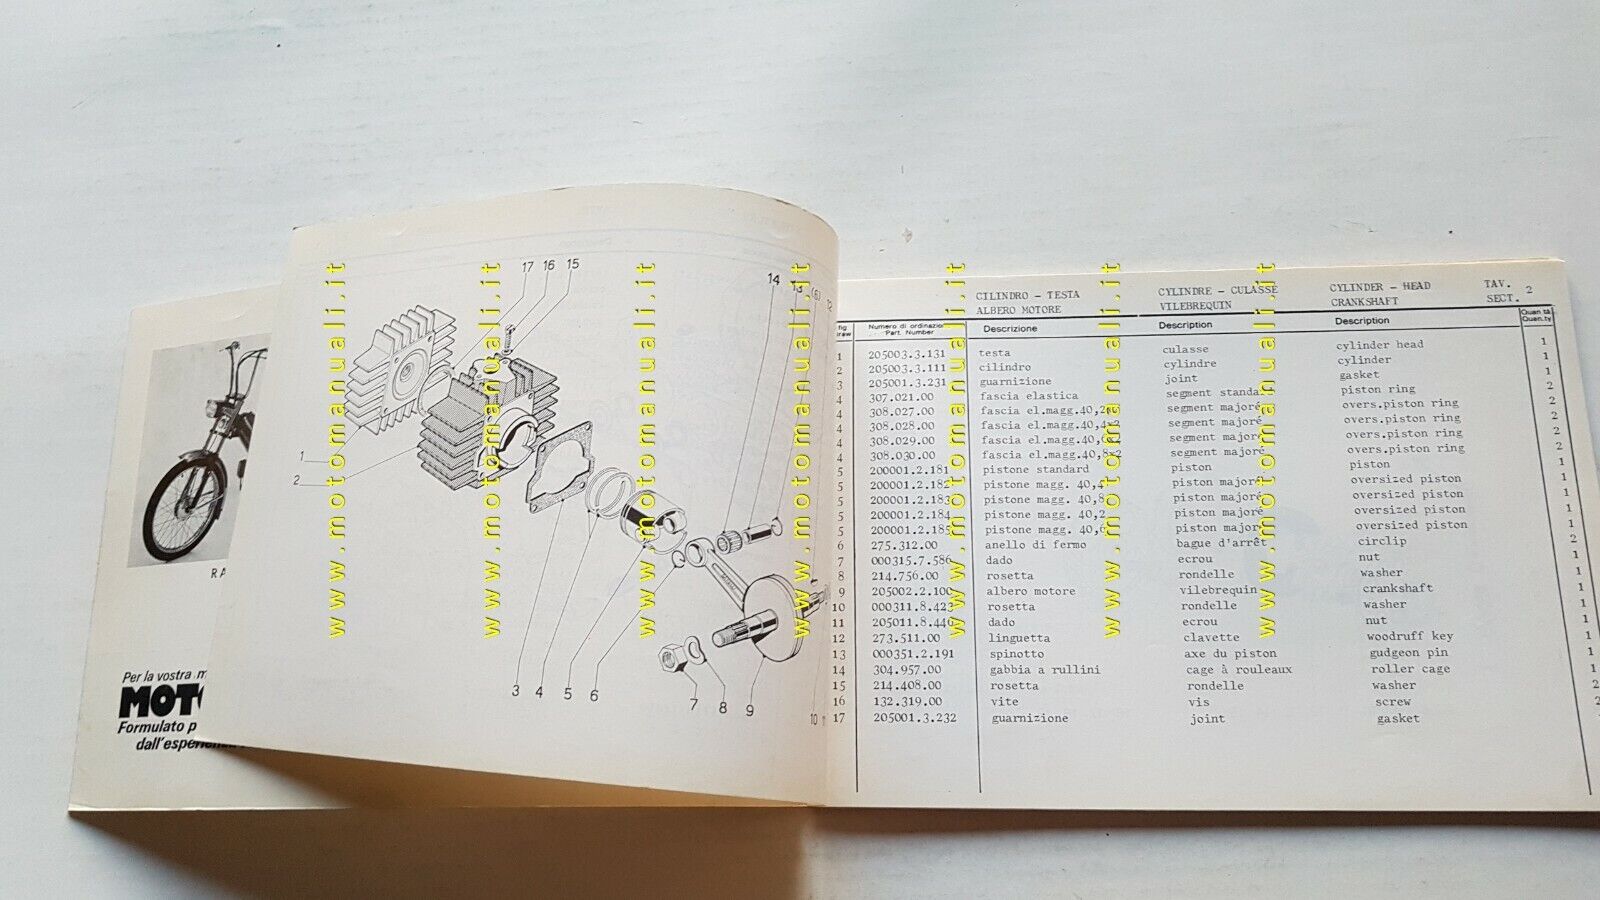 Per la vostra m
MOT
Formulato p
dall'esperienza
17 16 15
14 13 (6) 12
1
2
3 4 5 6
7 8 9
10
CILINDRO - TESTA CYLINDRE - CULASSE CYLINDER - HEAD TAV. 2
ALBERO MOTORE VILEBREQUIN CRANKSHAFT SECT.
fig Numero di ordinazio Descrizione Description Description Quantità
draw Part. Number Quan.ty
1 205003.3.131 testa culasse cylinder head 1
2 205003.3.111 cilindro cylindre cylinder 1
3 205001.3.231 guarnizione joint gasket 1
4 307.021.00 fascia elastica segment standard piston ring 2
4 308.027.00 fascia el.magg.40,2x2 segment majoré overs.piston ring 2
4 308.028.00 fascia el.magg.40,4x2 segment majoré overs.piston ring 2
4 308.029.00 fascia el.magg.40,6x2 segment majoré overs.piston ring 2
4 308.030.00 fascia el.magg.40,8x2 segment majoré overs.piston ring 2
5 200001.2.181 pistone standard piston piston 1
5 200001.2.182 pistone magg. 40,4 piston majoré oversized piston 1
5 200001.2.183 pistone magg. 40,8 piston majoré oversized piston 1
5 200001.2.184 pistone magg. 40,2 piston majoré oversized piston 1
5 200001.2.185 pistone magg. 40,6 piston majoré oversized piston 1
6 275.312.00 anello di fermo bague d'arrêt circlip 2
7 000315.7.586 dado ecrou nut 1
8 214.756.00 rosetta rondelle washer 1
9 205002.2.100 albero motore vilebrequin crankshaft 1
10 000311.8.423 rosetta rondelle washer 1
11 205011.8.440 dado ecrou nut 1
12 273.511.00 linguetta clavette woodruff key 1
13 000351.2.191 spinotto axe du piston gudgeon pin 1
14 304.957.00 gabbia a rullini cage à rouleaux roller cage 1
15 214.408.00 rosetta rondelle washer 2
16 132.319.00 vite vis screw 2
17 205001.3.232 guarnizione joint gasket
www.motomanuali.it
www.motomanuali.it
www.motomanuali.it
www.motomanuali.it
www.motomanuali.it
www.motomanuali.it
www.motomanuali.it